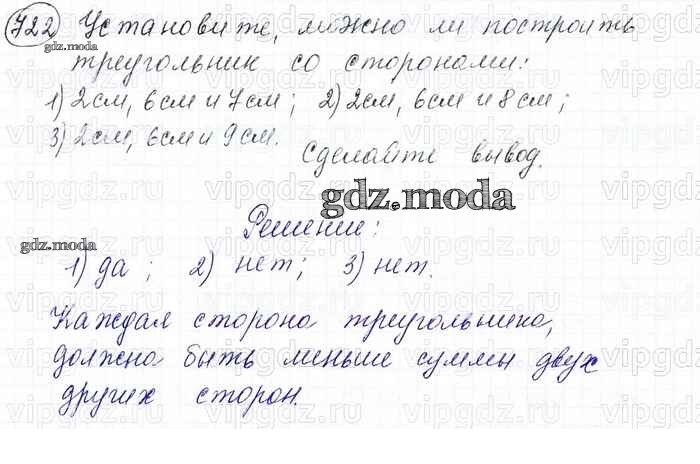 722 Установите, можно ли построить
gdz.moda
треугольник со сторонами:
1) 2см, 6см и 7см; 2) 2см, 6см и 8см;
3) 2см, 6см и 9см.
Сделайте вывод.
gdz.moda
Решение:
gdz.moda
1) да; 2) нет; 3) нет.
Каждая сторона треугольника,
должна быть меньше суммы двух
других сторон.
vipgdz.ru